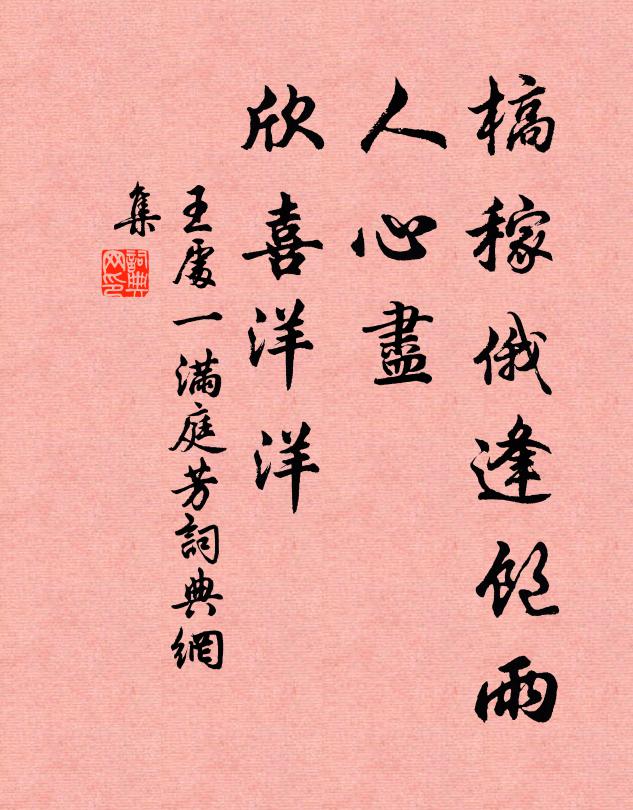 槁稼俄逢飽雨
人心盡
欣喜洋洋
王處一滿庭芳詞典網
集
詞典網印